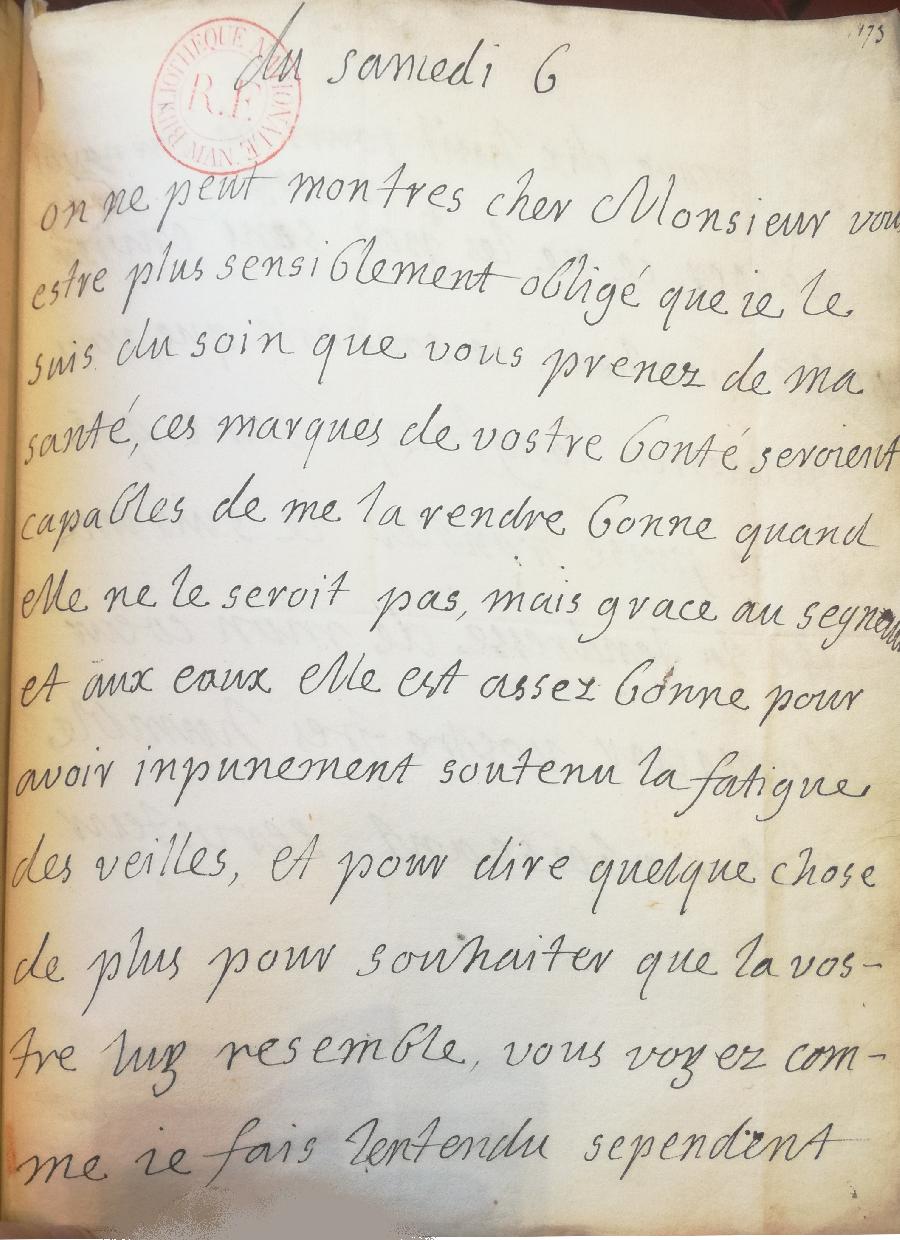 175
du samedi 6
BIBLIOTHEQUE NATIONALE MAN
R.F.
on ne peut mon tres cher Monsieur vous
estre plus sensiblement obligé que ie le
suis du soin que vous prenez de ma
santé, ces marques de vostre bonté seroient
capables de me la rendre bonne quand
elle ne le seroit pas, mais grace au segneur
et aux eaux elle est assez bonne pour
avoir inpunement soutenu la fatigue
des veilles, et pour dire quelque chose
de plus pour souhaiter que la vos-
tre luy resemble, vous voyez com-
me ie fais lentendu sependent